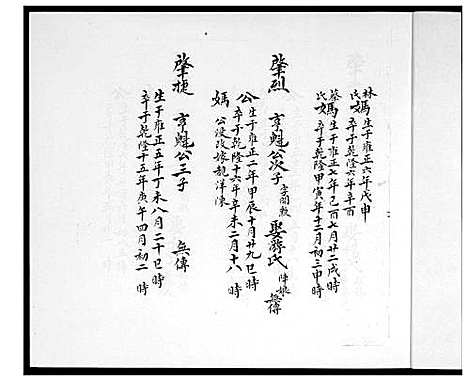 林氏媽生于雍正六年戊申
卒于乾隆六年辛酉
蔡氏媽生于雍正七年己酉七月廿二戌時
卒于乾隆甲寅年十二月初三申時
肇烈 亨魁公次子 字開敷 娶蔣氏 無傳
公生于雍正二年甲辰十月廿九巳時
卒于乾隆十六年辛未二月十八時
媽公沒改嫁龍洋陳
肇捷 亨魁公三子 無傳
生于雍正五年丁未八月二十巳時
卒于乾隆十五年庚午四月初二時